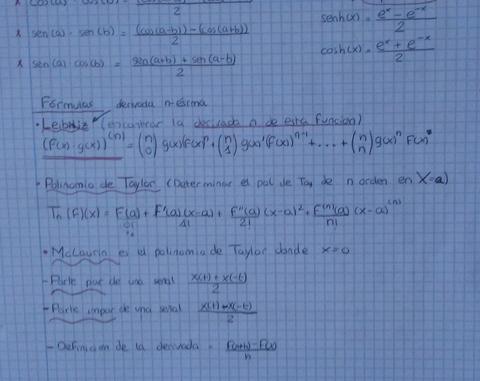 * cos(a) · cos(b) = (cos(a+b)) + (cos(a-b)) / 2
senh(x) = e^x - e^-x / 2
* sen(a) · sen(b) = (cos(a-b)) - (cos(a+b)) / 2
cosh(x) = e^x + e^-x / 2
* sen(a) cos(b) = sen(a+b) + sen(a-b) / 2
Fórmulas derivada n-ésima
• Leibniz (encontrar la derivada n de esta función)
(f(x) · g(x))^(n) = (n 0) g(x) f(x)^n + (n 1) g(x)' f(x)^n-1 + .... + (n n) g(x)^n f(x)
• Polinomio de Taylor (Determinar el pol de Tay de n orden en X=a)
Tn(f)(x) = f(a)/0! + f'(a)(x-a)/1! + f''(a)/2! (x-a)^2 + f^(n)(a)/n! (x-a)^(n)
• McLaurin es el polinomio de Taylor donde x=0
- Parte par de una señal x(t) + x(-t) / 2
- Parte impar de una señal x(t) - x(-t) / 2
- Definicion de la derivada = f(a+h) - f(x) / h